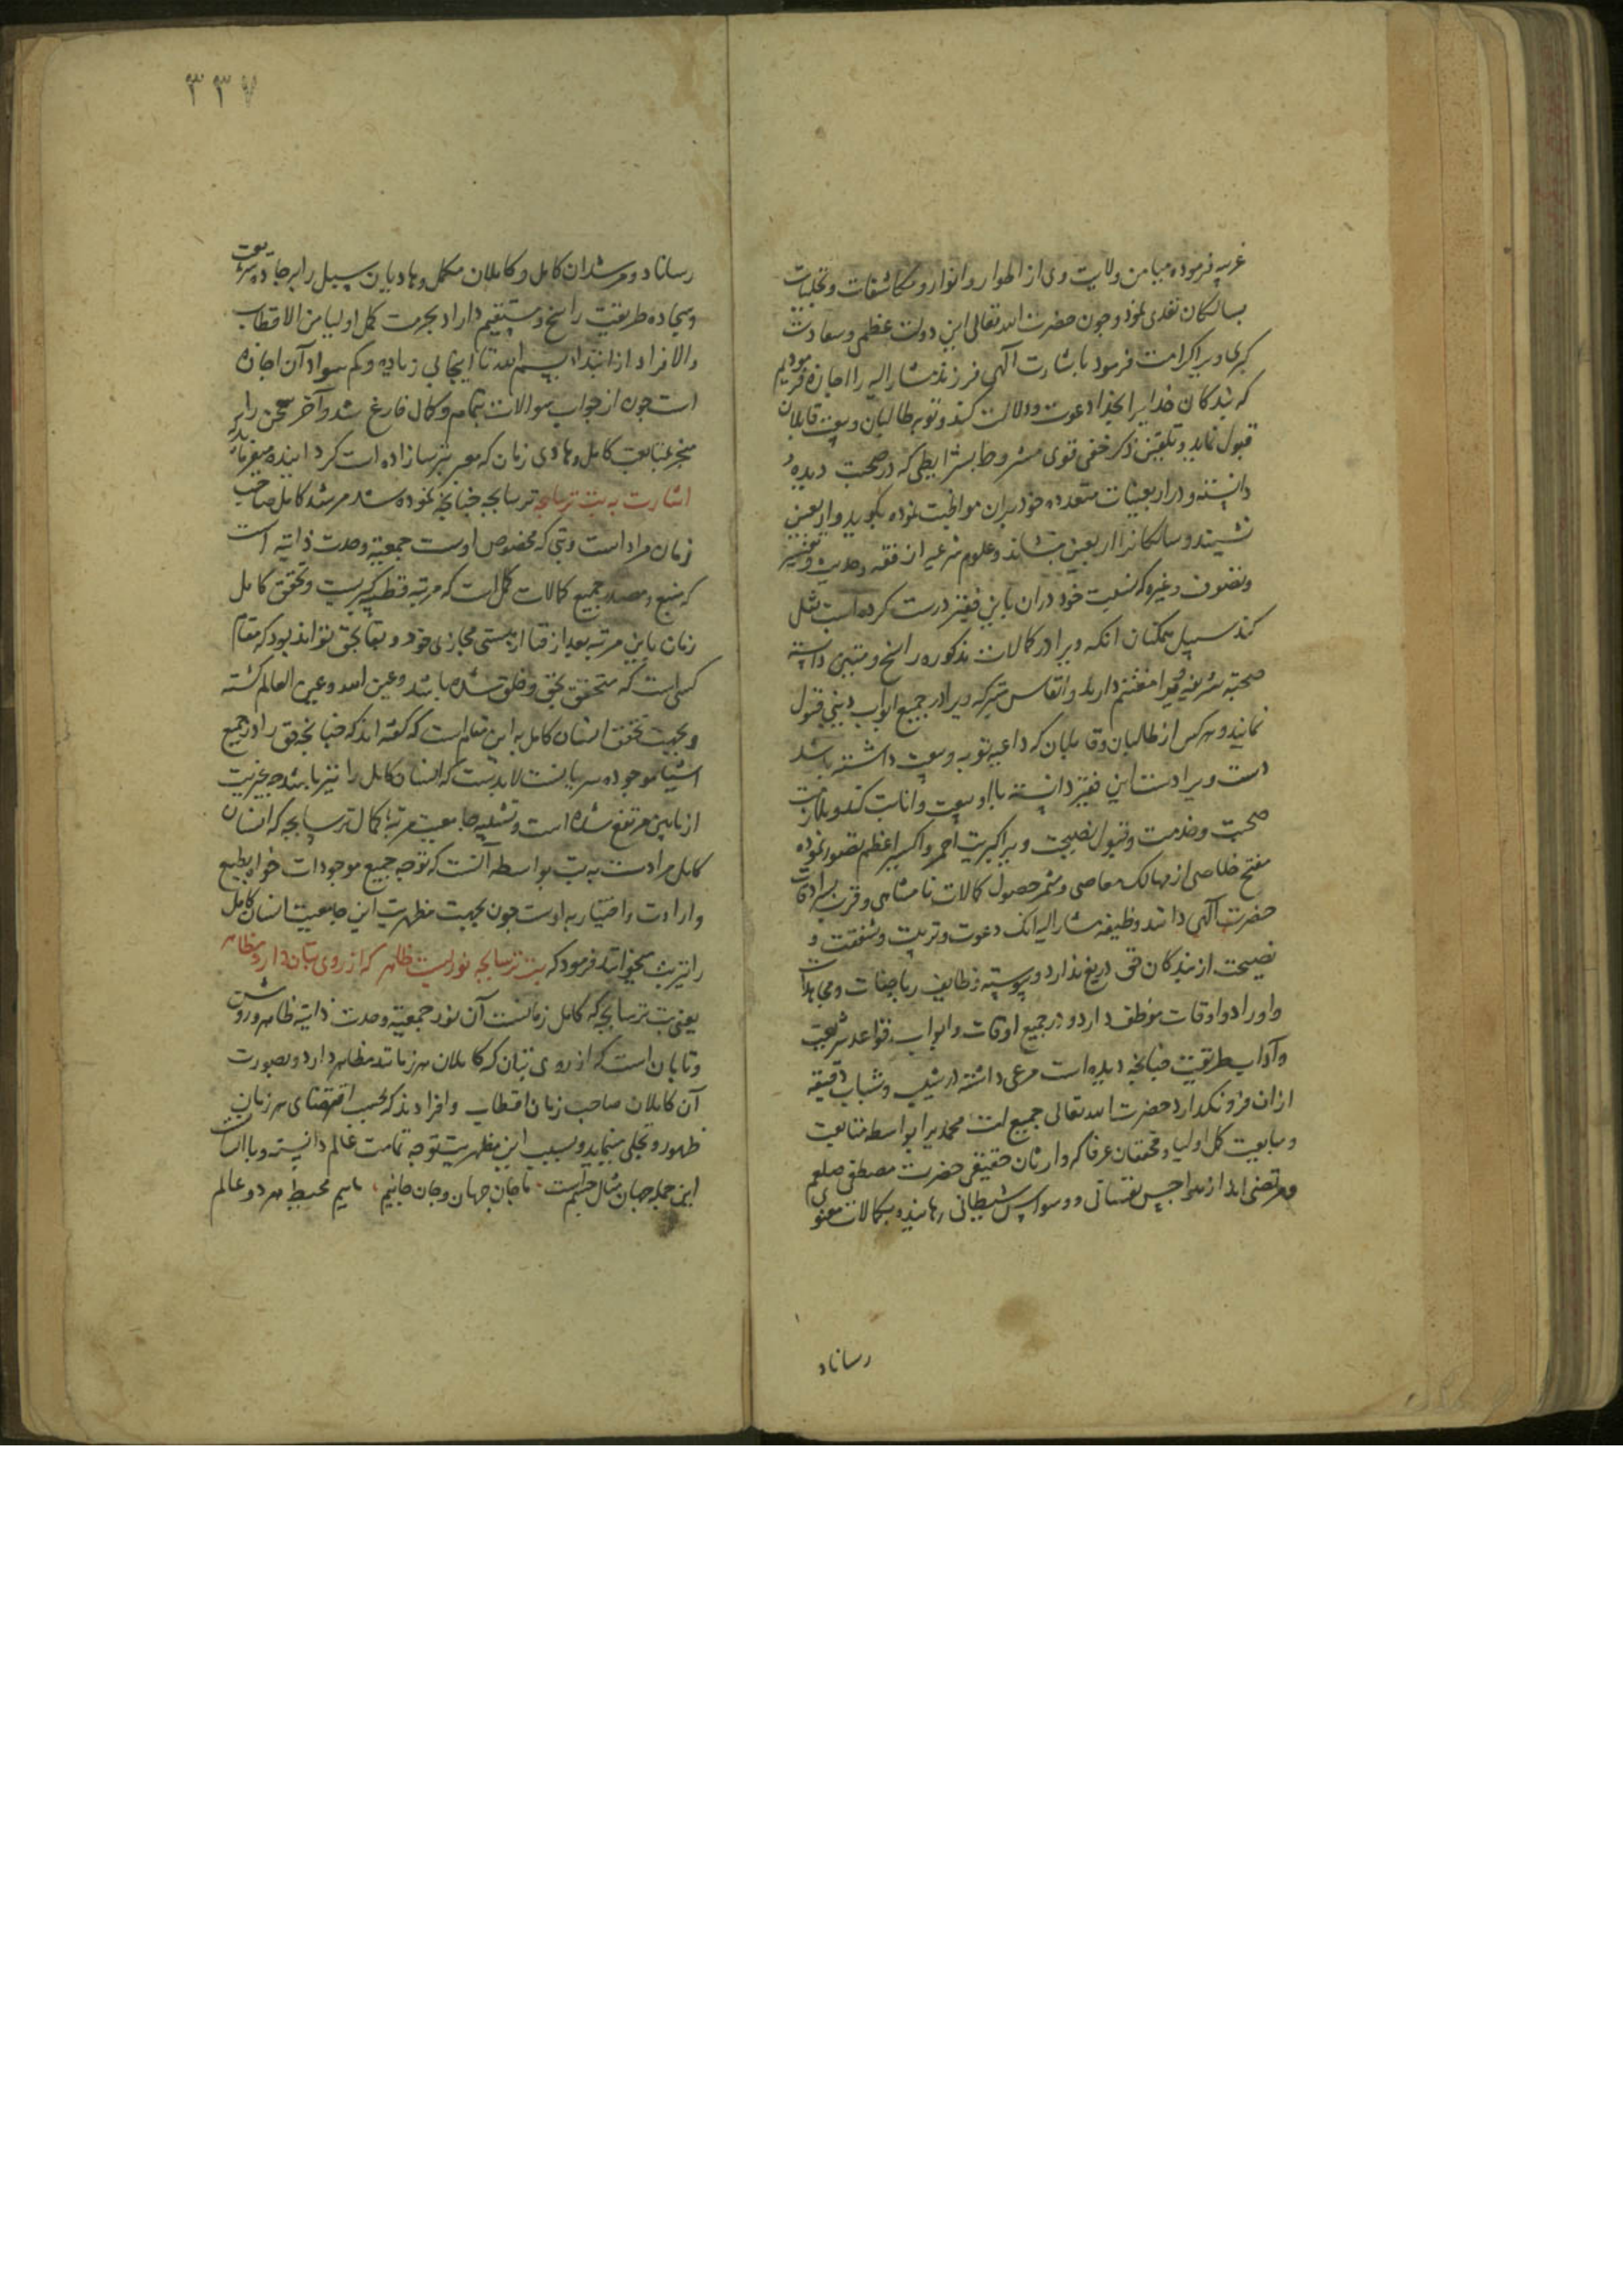 غریبه فرموده میامن ولایت وی از اطوار و انوار و مکاشفات و تجلیات
بسالکان تعدی نمود و چون حضرت الله تعالی این دولت عظمی و سعادت
کبری ویرا کرامت فرمود با بشارت الهی فرزند مشار الیه را اجازه فرمودیم
که بندگان خدایرا بخدا دعوت و دلالت کند و توبه طالبان و بیعت قابلان
قبول نماید و تلقین ذکر خفی قوی مشروط بشرایطی که در صحبت دیده و
دانسته و در اربعینات متعدده خود بران مواظبت نموده بگوید و اربعین
نشیند و سالکانرا اربعین بنشاند و علوم شرعیه از فقه و حدیث و تفسیر
و تصوف و غیره که نسبت خود دران باین فقیر درست کرده است نقل
کند سبیل همکنان انکه ویرا در کمالات مذکوره راسخ و متین دانسته
صحبت شریف ویرا مغتنم دارند و انفاس متبرکه ویرا در جمیع ابواب دینی قبول
نمایند و هر کس از طالبان و قابلان که داعیه توبه و بیعت داشته باشد
دست ویرا دست این فقیر دانسته با او بیعت و انابت کند و ملازمت
صحبت و خدمت و قبول نصیحت ویرا کبریت احمر و اکسیر اعظم تصور نموده
مفتح خلاصی از مهالک معاصی و مثمر حصول کمالات نامتناهی و قرب سرادقات
حضرت الهی دانند وظیفه مشار الیه انک دعوت و تربیت و شفقت و
نصیحت از بندگان حق دریغ ندارد و پیوسته وظایف ریاضات و مجاهدات
و اوراد و اوقات موظف دارد و در جمیع اوقات و ابواب قواعد شریعت
و آداب طریقت چنانچه دیده است مرعی داشته در شیب و شباب دقیقه
ازان فرو نگذارد حضرت الله تعالی جمیع امت محمدیرا بواسطه متابعت
و مبایعت کمل اولیا و محققان عرفا که وارثان حقیقی حضرت مصطفی صلعم
و مرتضی اند از هواجس نفسانی و وسواس شیطانی رهانیده بکمالات معنوی
رساناد
۳۳۷
رساناد و مرشدان کامل و کاملان مکمل و هادیان سبیل را بر جاده شریعت
و سجاده طریقت راسخ و مستقیم داراد بحرمت کمل اولیا من الاقطاب
والافراد از ابتداء بسم الله تا اینجا بی زیاده و کم سواد آن اجازه
است چون از جواب سوالات بتمام و کمال فارغ شد و آخر سخن را بر
منجر بمتابعت کامل و هادی زمان که معبر بترسازاده است گردانیده میفرماید
اشارت به بت ترسابچه ترسابچه چنانچه نموده شد مرشد کامل صاحب
زمان مراد است و بتی که مخصوص اوست جمعیة وحدت ذاتیه است
که منبع و مصدر جمیع کمالات کمل است که مرتبه قطب کبریست و تحقق کامل
زمان باین مرتبه بعد از فنا از هستی مجازی خود و بقا بحق تواند بود که مقام
کسی است که متحقق بحق و خلق شده باشد و عین الله و عین العالم گشته
و بجهت تحقق انسان کامل به این مقام است که گفته اند که چنانچه حق را در جمیع
اشیا موجوده سریانست لابدست که انسان کامل را نیز باشد چه غیریت
از مابین مرتفع شده است و تشبیه جامعیت مرتبه کمال ترسابچه که انسان
کامل مرادست به بت بواسطه آنست که توجه جمیع موجودات خواه بطبع
و ارادت و اختیار به اوست چون بجهت مظهریت این جامعیت انسان کامل
را نیز بت میخوانند فرمود که بت ترسابچه نوریست ظاهر که از روی بتان دارد مظاهر
یعنی بت ترسابچه که کامل زمانست آن نور جمعیة وحدت ذاتیه ظاهر و روشن
و تابان است که از روی بتان که کاملان هر زمانند مظاهر دارد و بصورت
آن کاملان صاحب زمان اقطاب و افرادند که بحسب اقتضای هر زمان
ظهور و تجلی مینماید و بسبب این مظهریت توجه تمامت عالم دانسته و با
این جمله جهان مثال جسمست ما جان جهان و جان جانیم مائیم محیط هر دو عالم